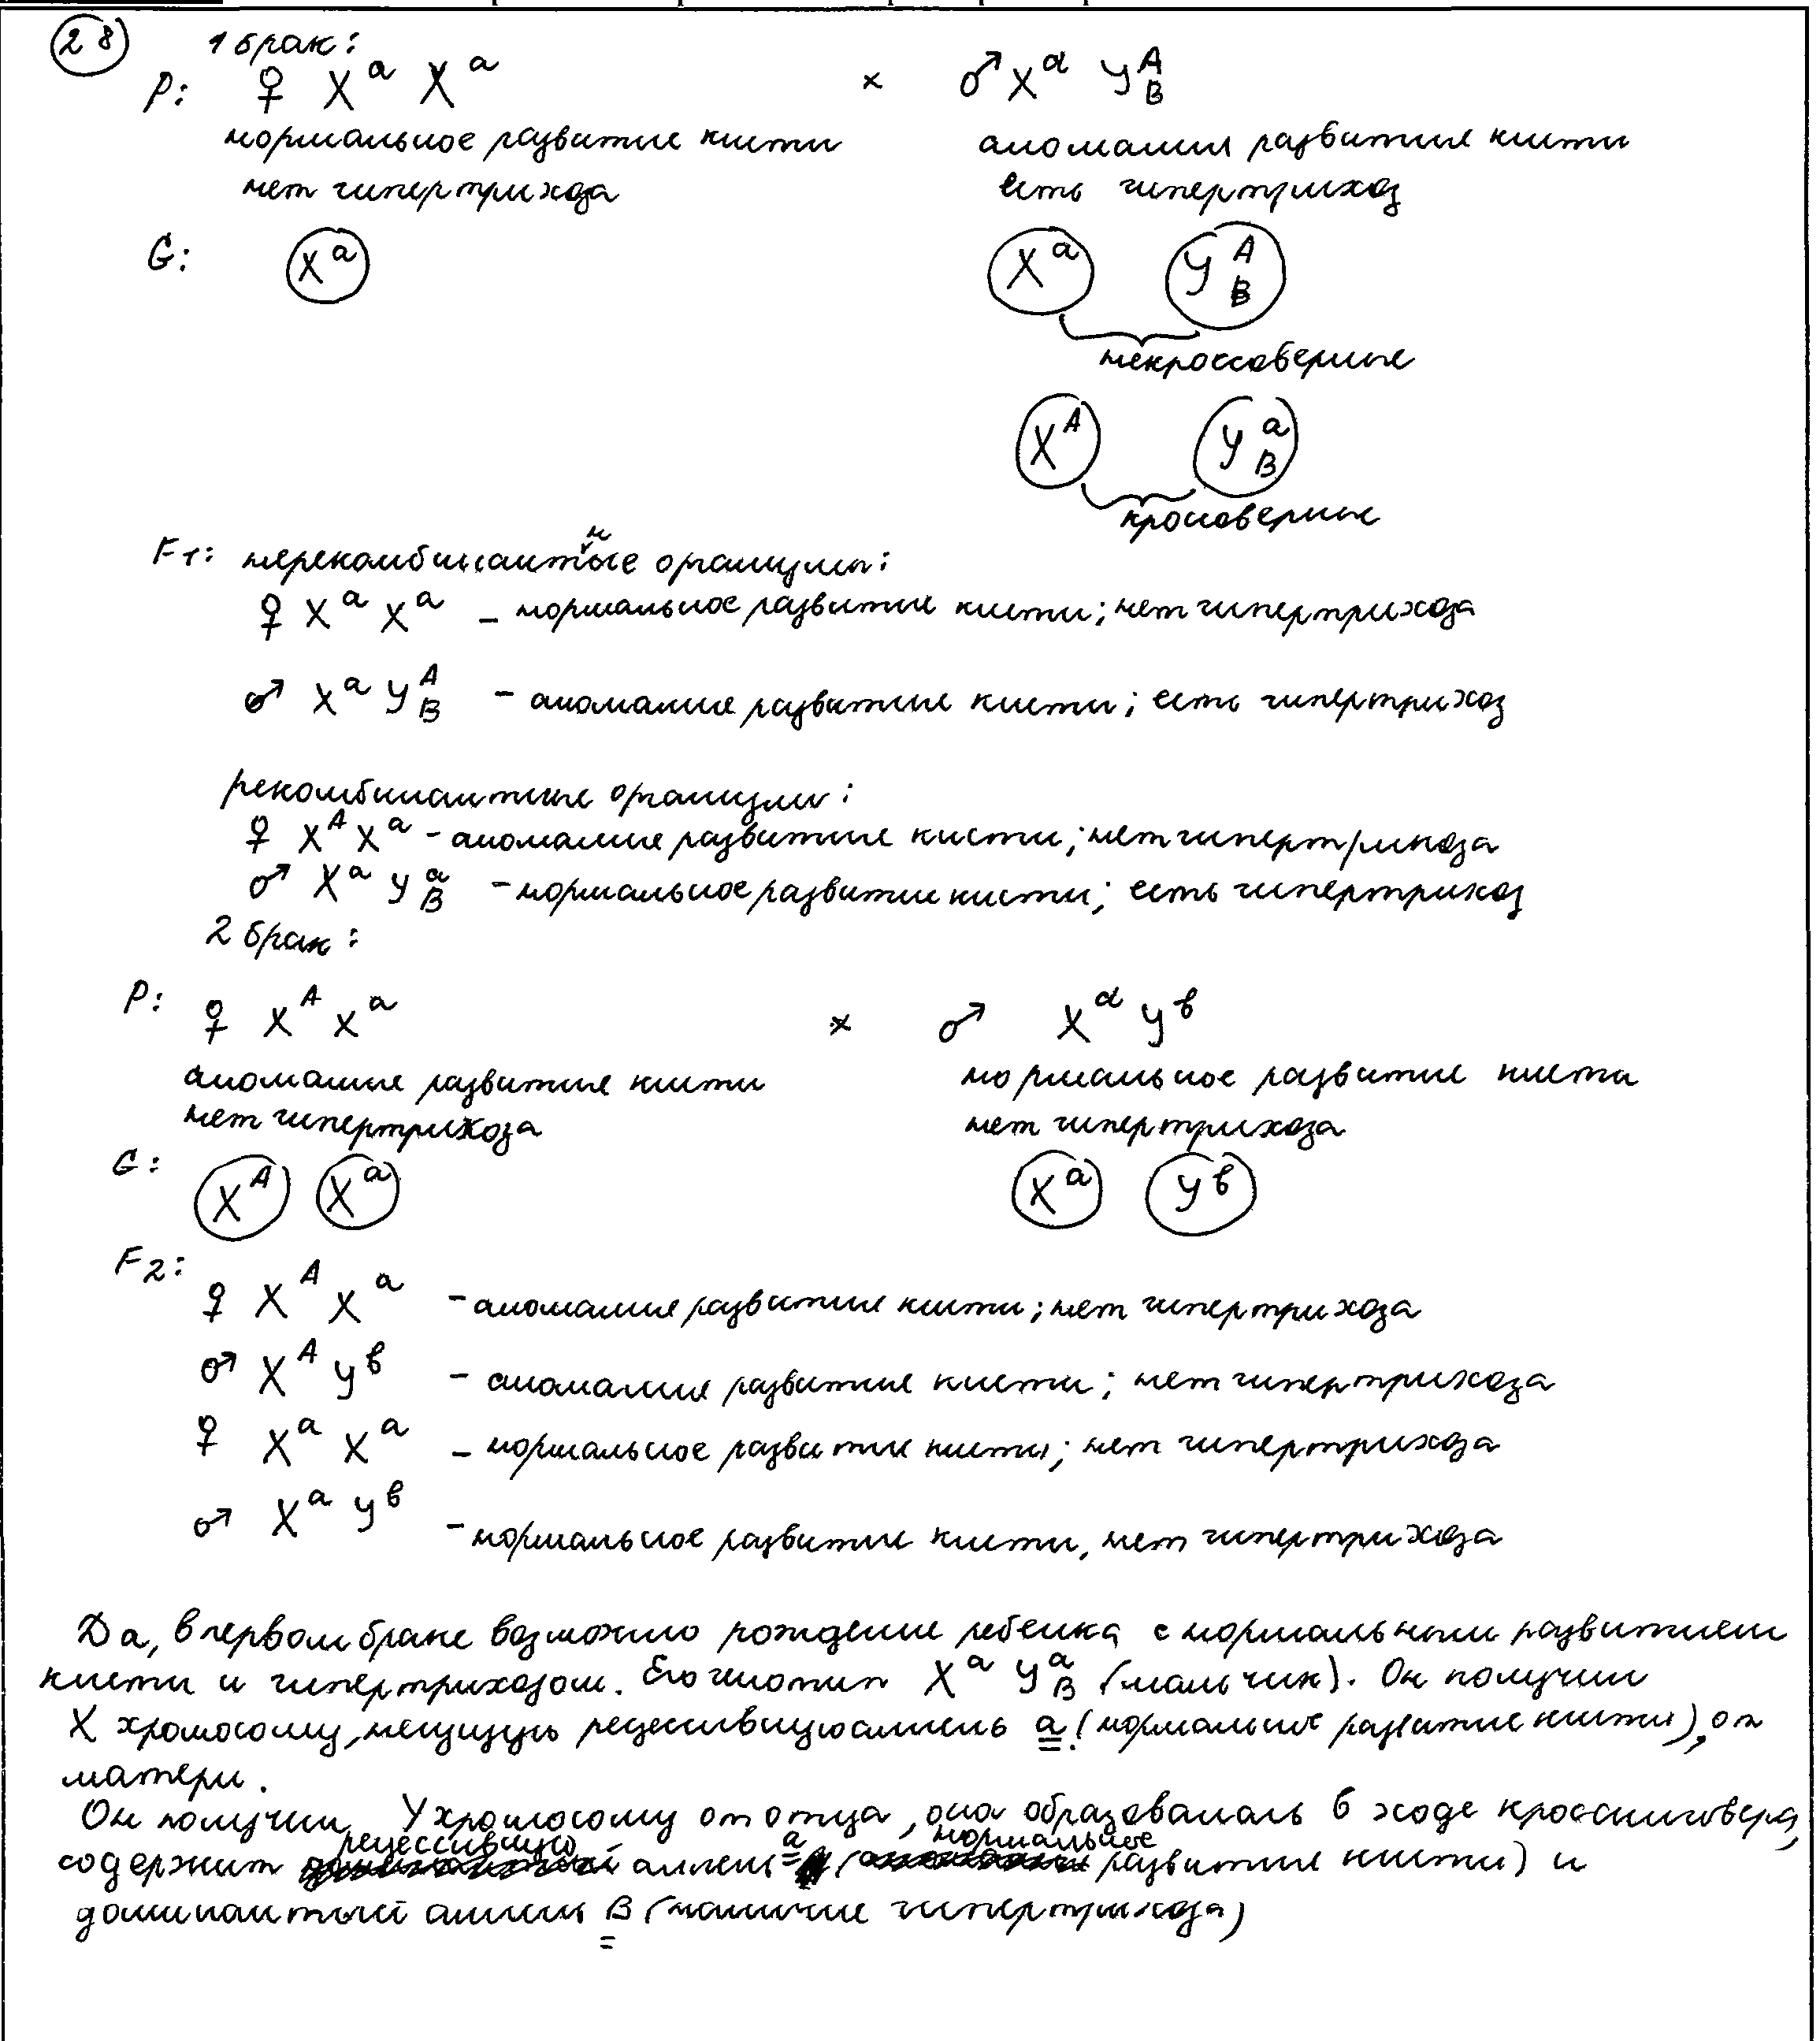 28 1 брак:
P: ♀ X^a X^a × ♂ X^a Y^A_B
нормальное развитие кисти аномалия развития кисти
нет гипертрихоза есть гипертрихоз
G: X^a X^a Y^A_B
некроссоверные
X^A Y^a_B
кроссоверные
F1: нерекомбинантные организмы:
♀ X^a X^a – нормальное развитие кисти; нет гипертрихоза
♂ X^a Y^A_B – аномалия развития кисти; есть гипертрихоз
рекомбинантные организмы:
♀ X^A X^a – аномалия развития кисти; нет гипертрихоза
♂ X^a Y^a_B – нормальное развитие кисти; есть гипертрихоз
2 брак:
P: ♀ X^A X^a × ♂ X^a Y^в
аномалия развития кисти нормальное развитие кисти
нет гипертрихоза нет гипертрихоза
G: X^A X^a X^a Y^в
F2:
♀ X^A X^a – аномалия развития кисти; нет гипертрихоза
♂ X^A Y^в – аномалия развития кисти; нет гипертрихоза
♀ X^a X^a – нормальное развитие кисти; нет гипертрихоза
♂ X^a Y^в – нормальное развитие кисти, нет гипертрихоза
Да, в первом браке возможно рождение ребенка с нормальным развитием
кисти и гипертрихозом. Его генотип X^a Y^a_B (мальчик). Он получил
X хромосому, несущую рецессивную аллель a (нормальное развитие кисти), от
матери.
Он получил Y хромосому от отца, она образовалась в ходе кроссинговера,
содержит рецессивную аллель a (нормальное развитие кисти) и
доминантный аллель B (наличие гипертрихоза)